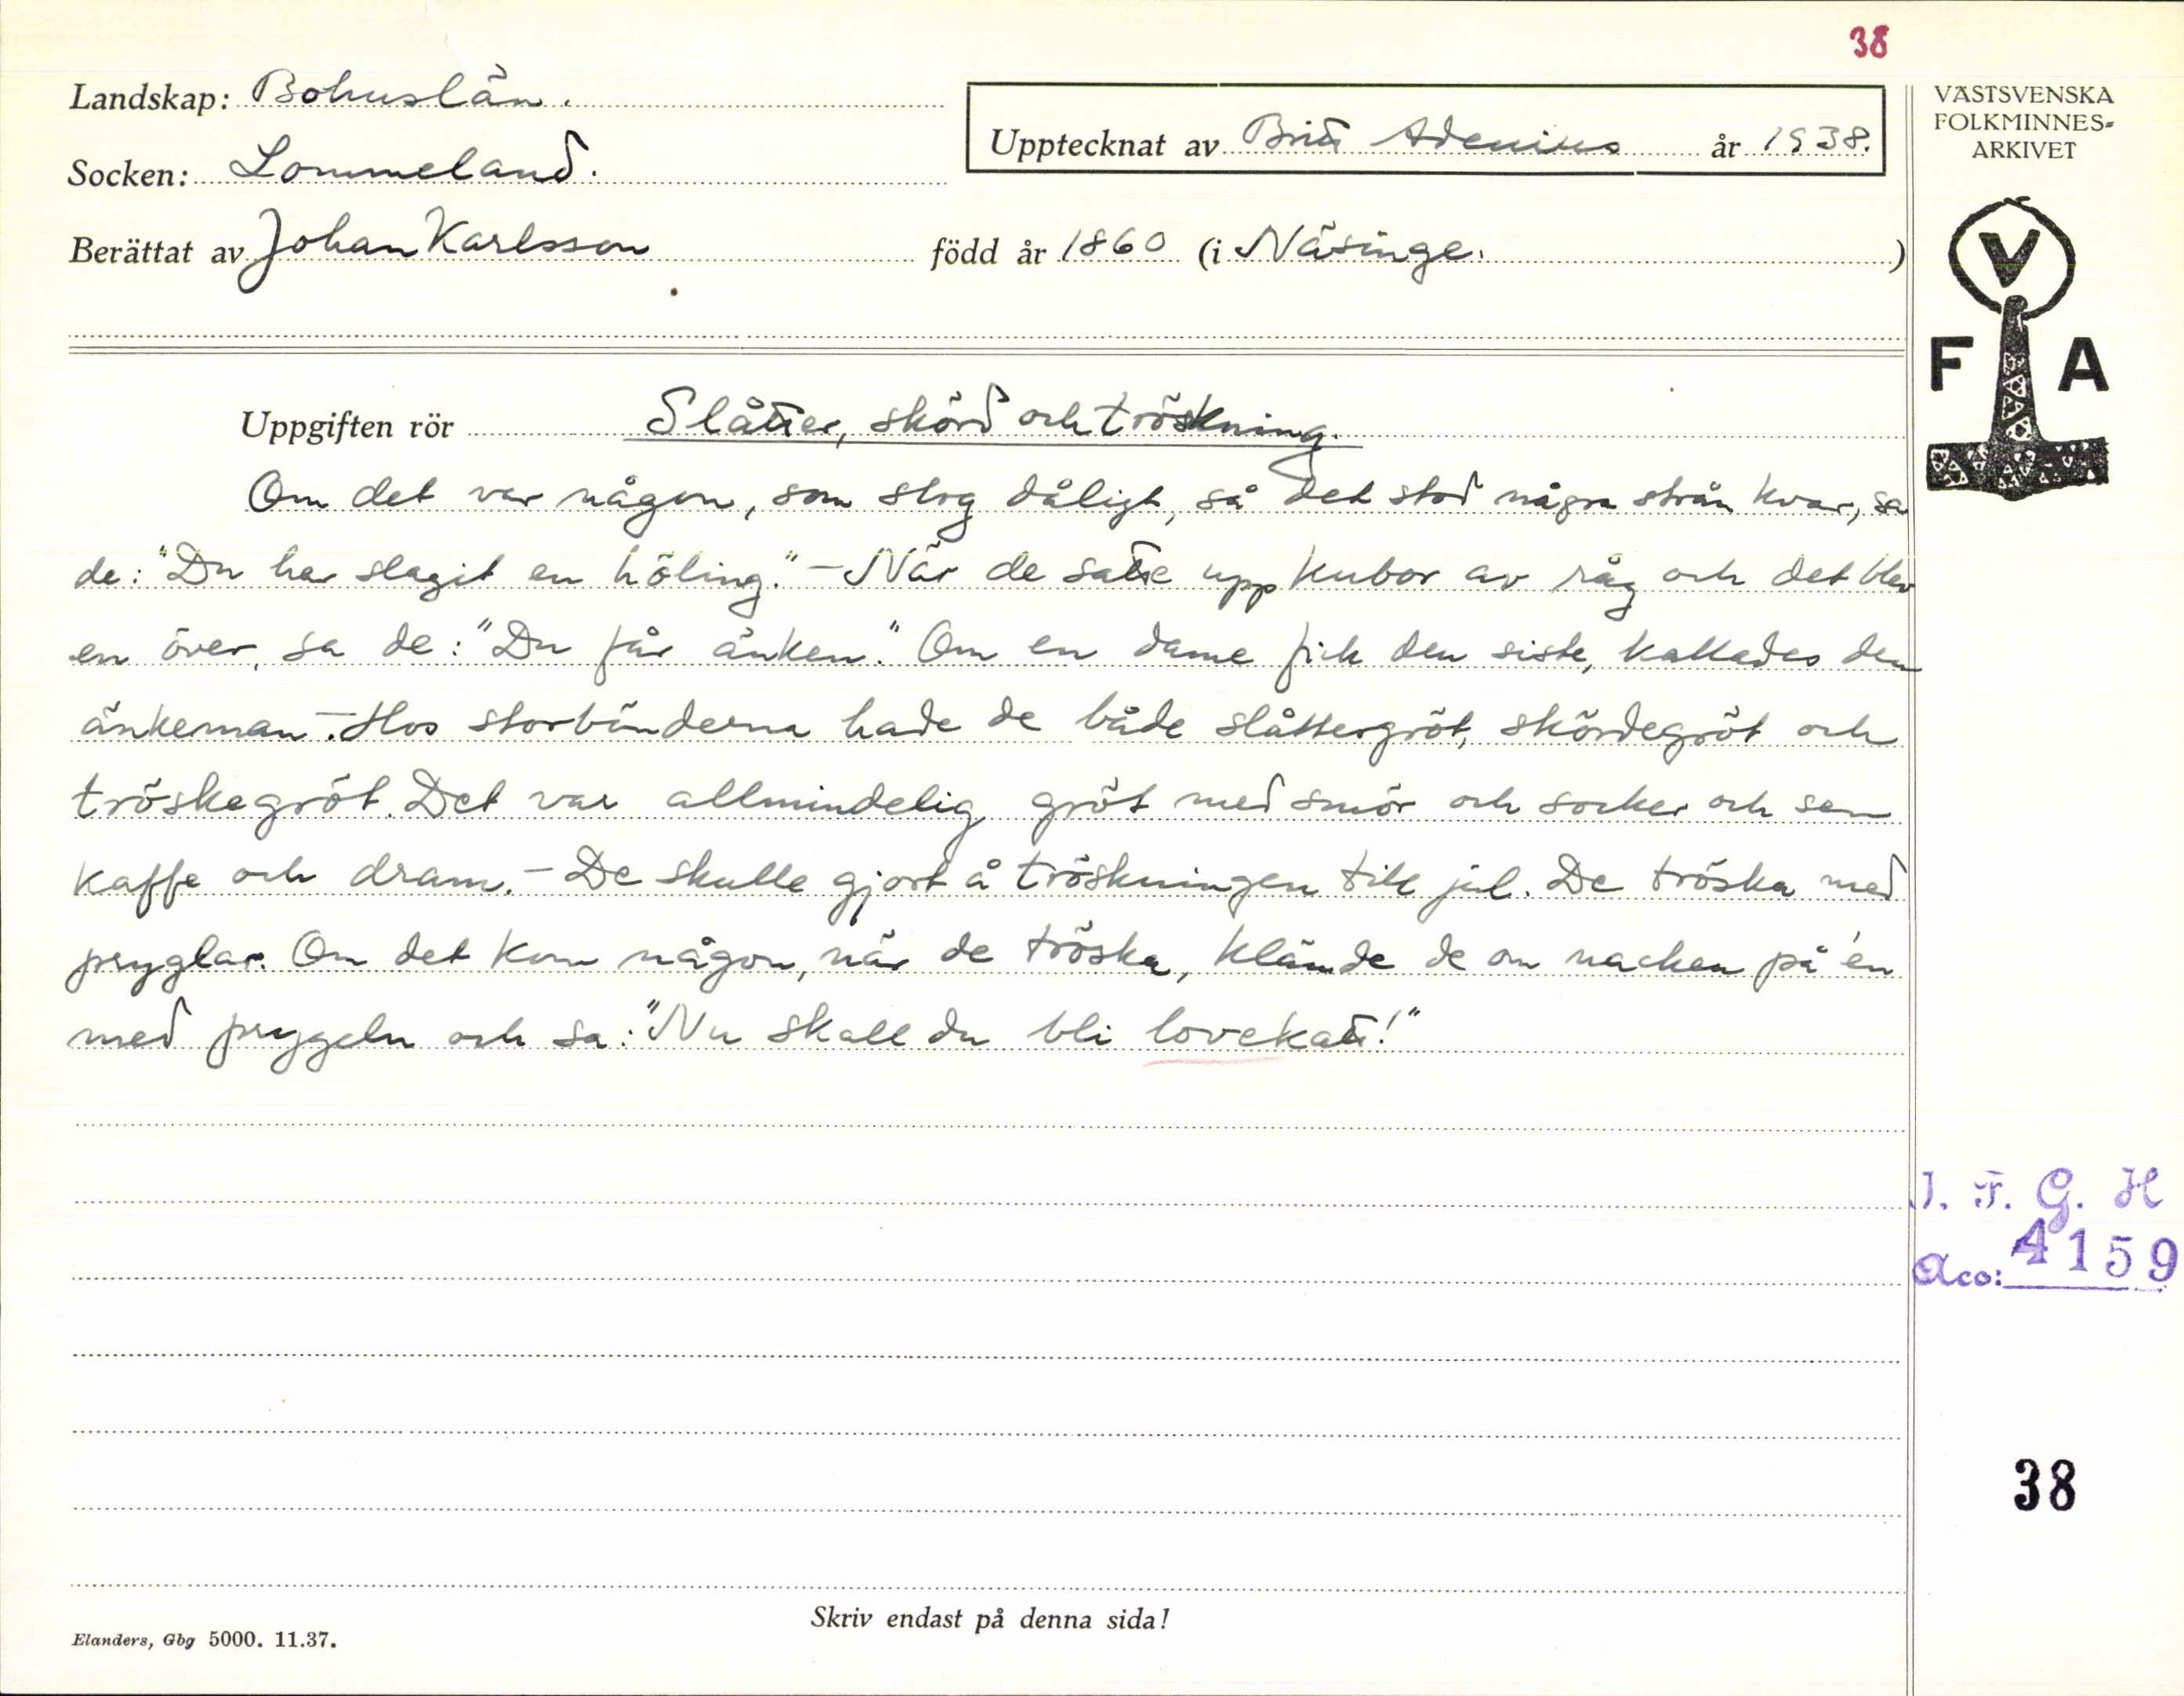 38
Landskap: Bohuslän.
Upptecknat av Britt Adenius år 1938.
Socken: Lommeland.
Berättat av Johan Karlsson född år 1860 (i Näsinge. )
VÄSTSVENSKA
FOLKMINNES-
ARKIVET
V
F A
Uppgiften rör Slåtter, skörd och tröskning.
Om det var någon, som slog dåligt, så det stod några strån kvar, sa
de: "Du har slagit en höling." - När de satte upp kubor av råg och det blev
en över, sa de: "Du får änken." Om en dame fick den siste, kallades den
änkeman. - Hos storbönderna hade de både slåttergröt, skördegröt och
tröskegröt. Det var allmindelig gröt med smör och socker och sen
kaffe och dram. - De skulle gjort å tröskningen till jul. De tröska med
pryglar. Om det kom någon, när de tröska, klämde de om nacken på én
med prygeln och sa: "Nu skall du bli lovekatt!"
I. F. G. H
Acc: 4159
38
Skriv endast på denna sida!
Elanders, Gbg 5000. 11.37.